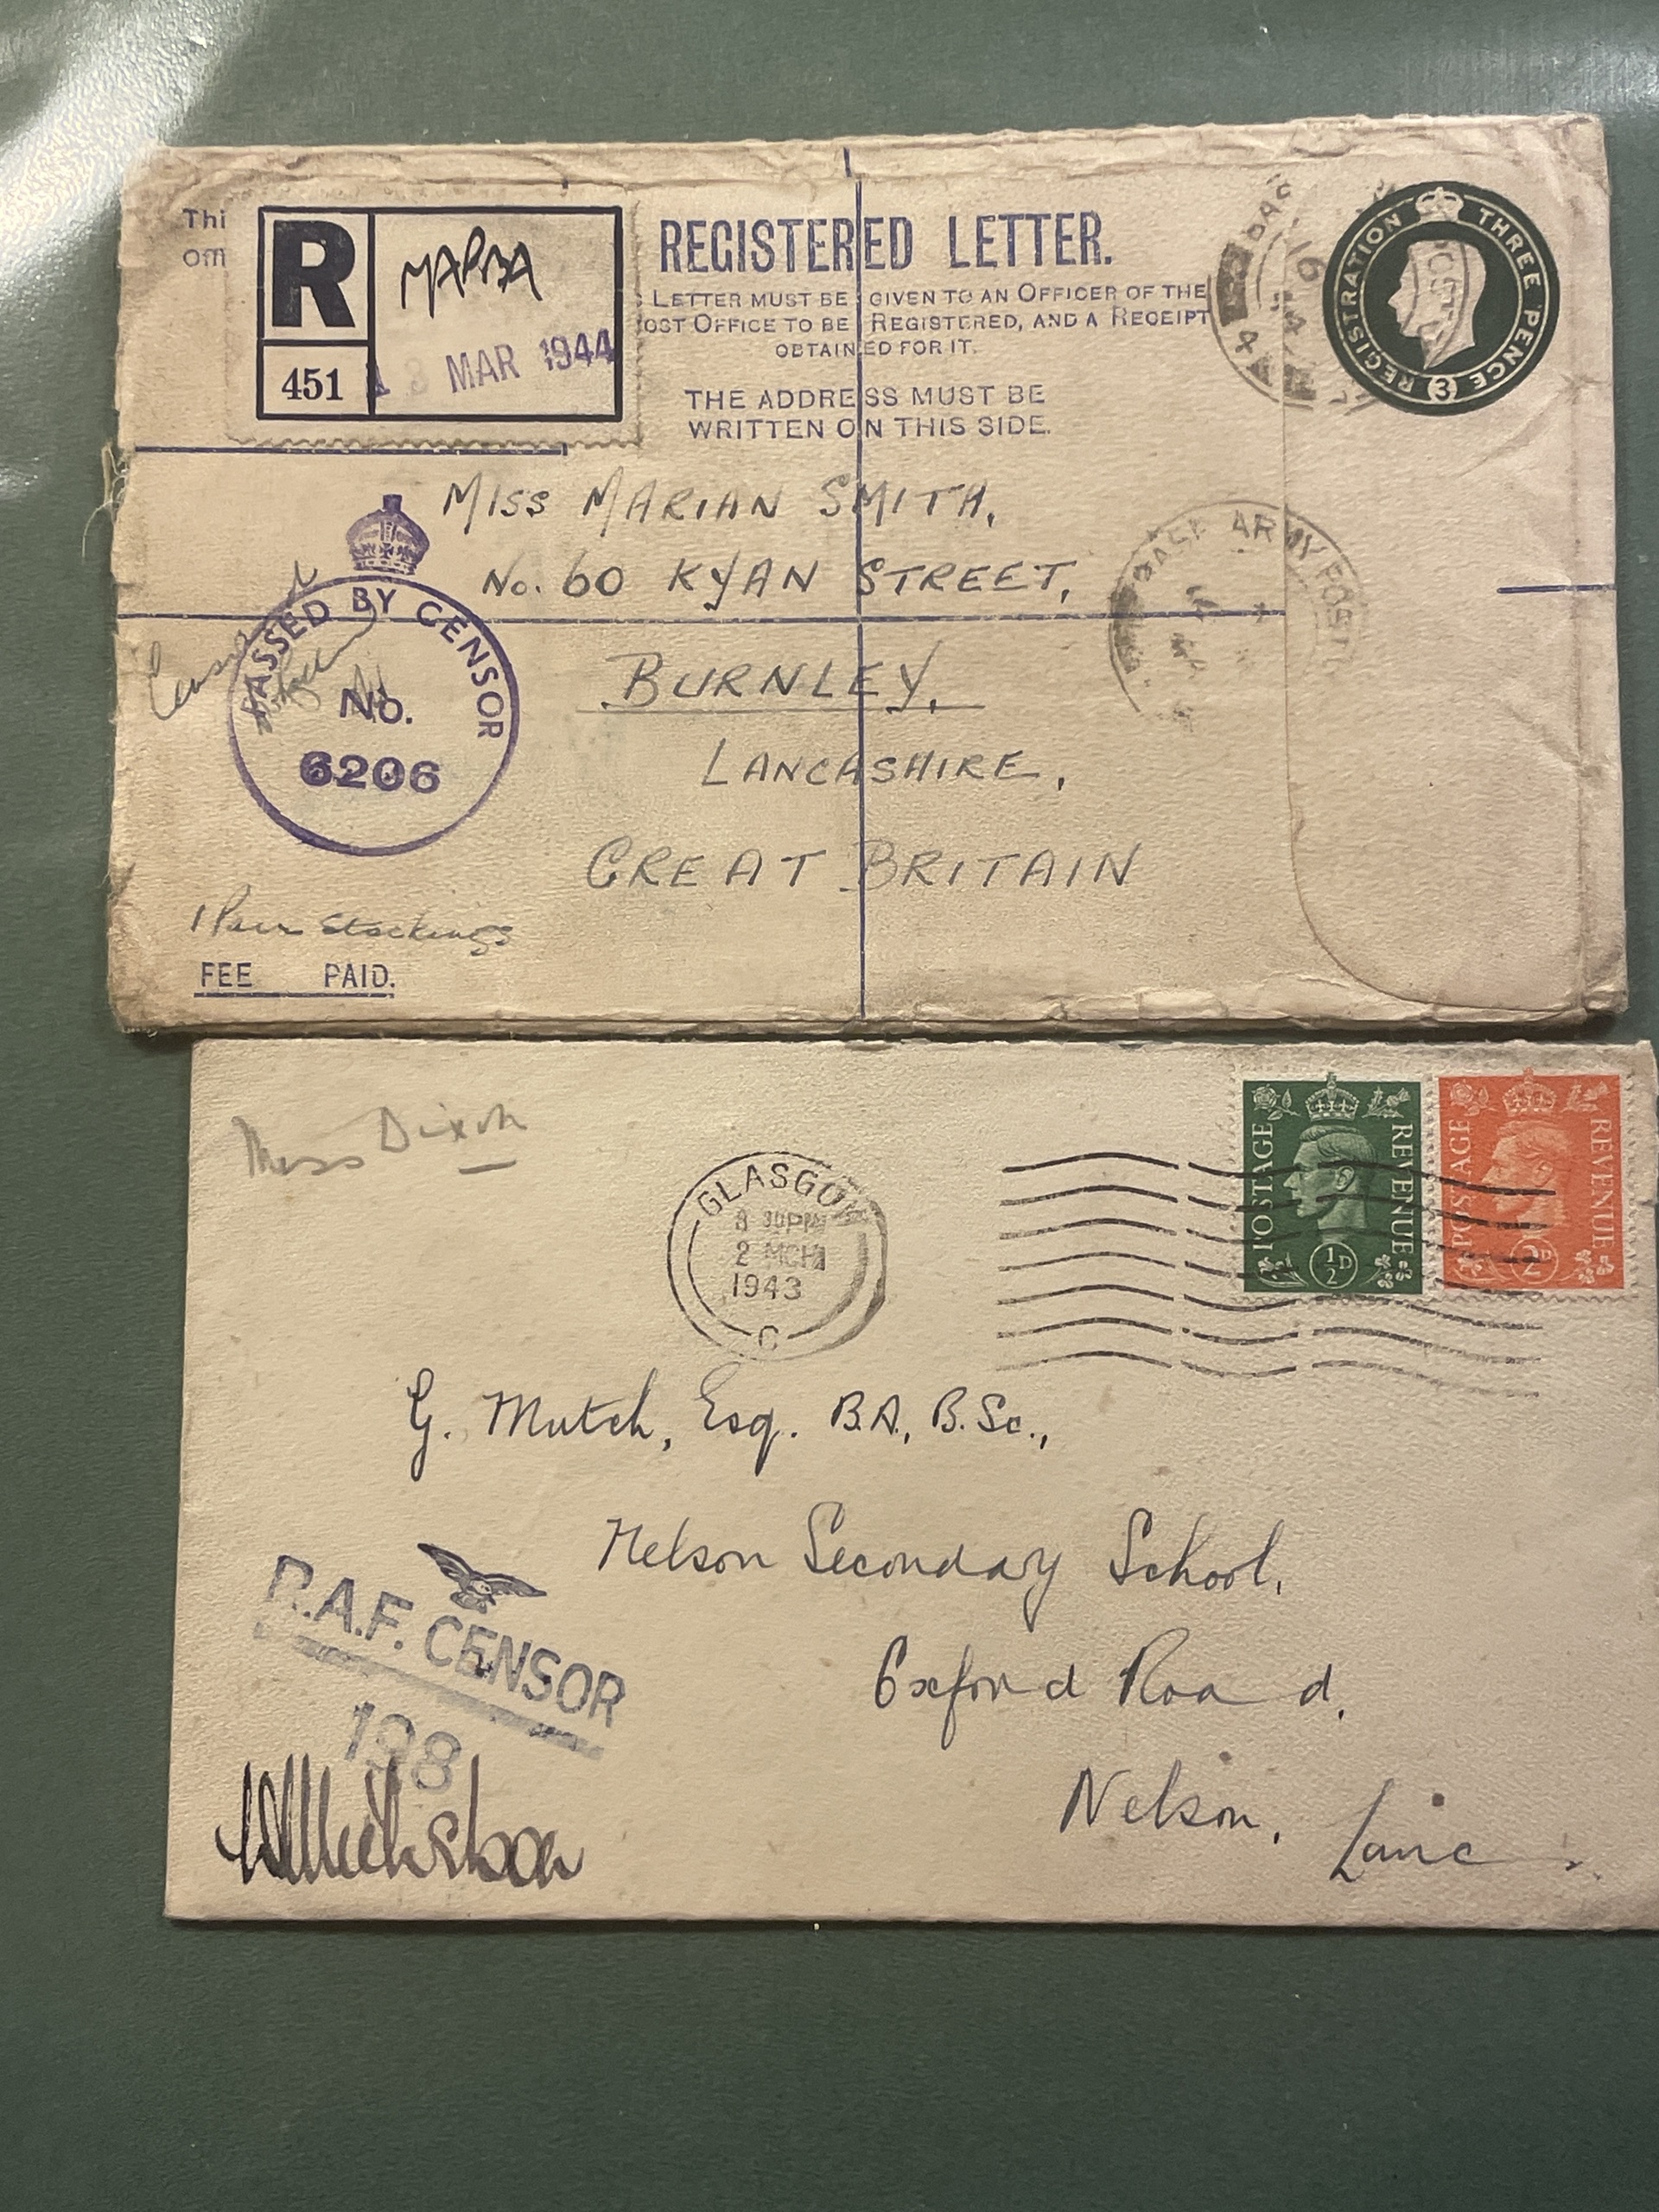 Thi
offi
R
MAPBA
451
MAR 1944
REGISTERED LETTER.
LETTER MUST BE GIVEN TO AN OFFICER OF THE
OST OFFICE TO BE REGISTERED, AND A RECEIPT
OBTAINED FOR IT.
THE ADDRESS MUST BE
WRITTEN ON THIS SIDE.
REGISTRATION THREE PENCE
3
BASE ARMY POST
MISS MARIAN SMITH,
No. 60 KYAN STREET,
BURNLEY,
LANCASHIRE,
GREAT BRITAIN
PASSED BY CENSOR
No.
6206
1 Pair Stockings
FEE PAID.
Miss Dixon
GLASGOW
8 30PM
2 MCH
1943
C
POSTAGE REVENUE
½D
POSTAGE REVENUE
2D
G. Mutch, Esq. B.A., B.Sc.,
Nelson Secondary School,
Oxford Road,
Nelson, Lanc
R.A.F. CENSOR
198